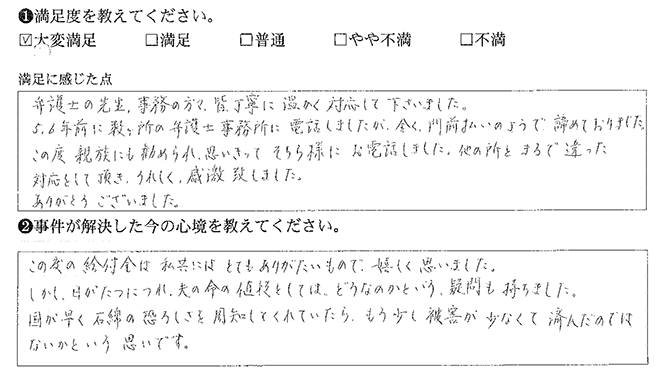 ❶満足度を教えてください。
☑大変満足 □満足 □普通 □やや不満 □不満
満足に感じた点
弁護士の先生、事務の方々、皆丁寧に温かく対応して下さいました。
5,6年前に数ヶ所の弁護士事務所に電話しましたが、全く、門前払いのようで諦めておりました。
この度親族にも勧められ、思いきってそちら様にお電話しました。他の所とまるで違った
対応をして頂き、うれしく、感激致しました。
ありがとうございました。
❷事件が解決した今の心境を教えてください。
この度の給付金は私共にはとてもありがたいもので、嬉しく思いました。
しかし、日がたつにつれ、夫の命の値段としては、どうなのかという、疑問も持ちました。
国が早く石綿の恐ろしさを周知してくれていたら、もう少し被害が少なくて済んだのでは
ないかという思いです。